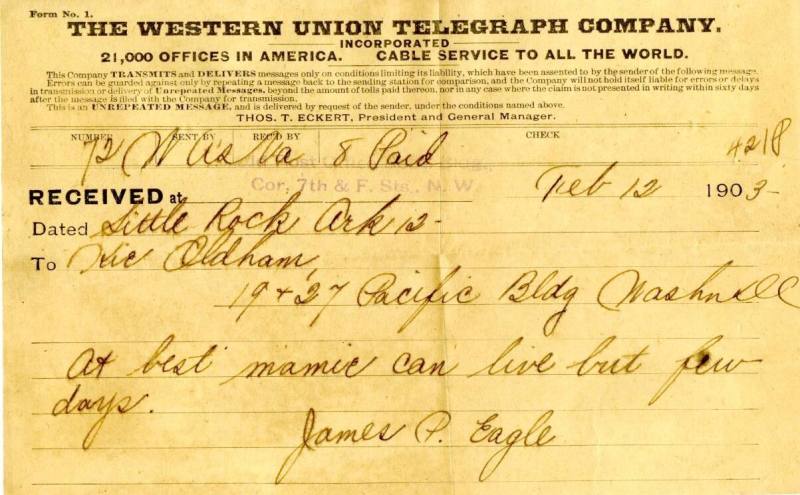 Form No. 1.
THE WESTERN UNION TELEGRAPH COMPANY.
INCORPORATED
21,000 OFFICES IN AMERICA. CABLE SERVICE TO ALL THE WORLD.
This Company TRANSMITS and DELIVERS messages only on conditions limiting its liability, which have been assented to by the sender of the following message.
Errors can be guarded against only by repeating a message back to the sending station for comparison, and the Company will not hold itself liable for errors or delays
in transmission or delivery of Unrepeated Messages, beyond the amount of tolls paid thereon, nor in any case where the claim is not presented in writing within sixty days
after the message is filed with the Company for transmission.
This is an UNREPEATED MESSAGE, and is delivered by request of the sender, under the conditions named above.
THOS. T. ECKERT, President and General Manager.
NUMBER SENT BY REC'D BY CHECK
72 W Us Va 8 Paid 421P
Cor. 7th & F. Sts., N. W.
RECEIVED at Feb 12 1903
Dated Little Rock Ark 12-
To Kie Oldham,
19 + 27 Pacific Bldg Washn DC
At best mamie can live but few
days.
James P. Eagle